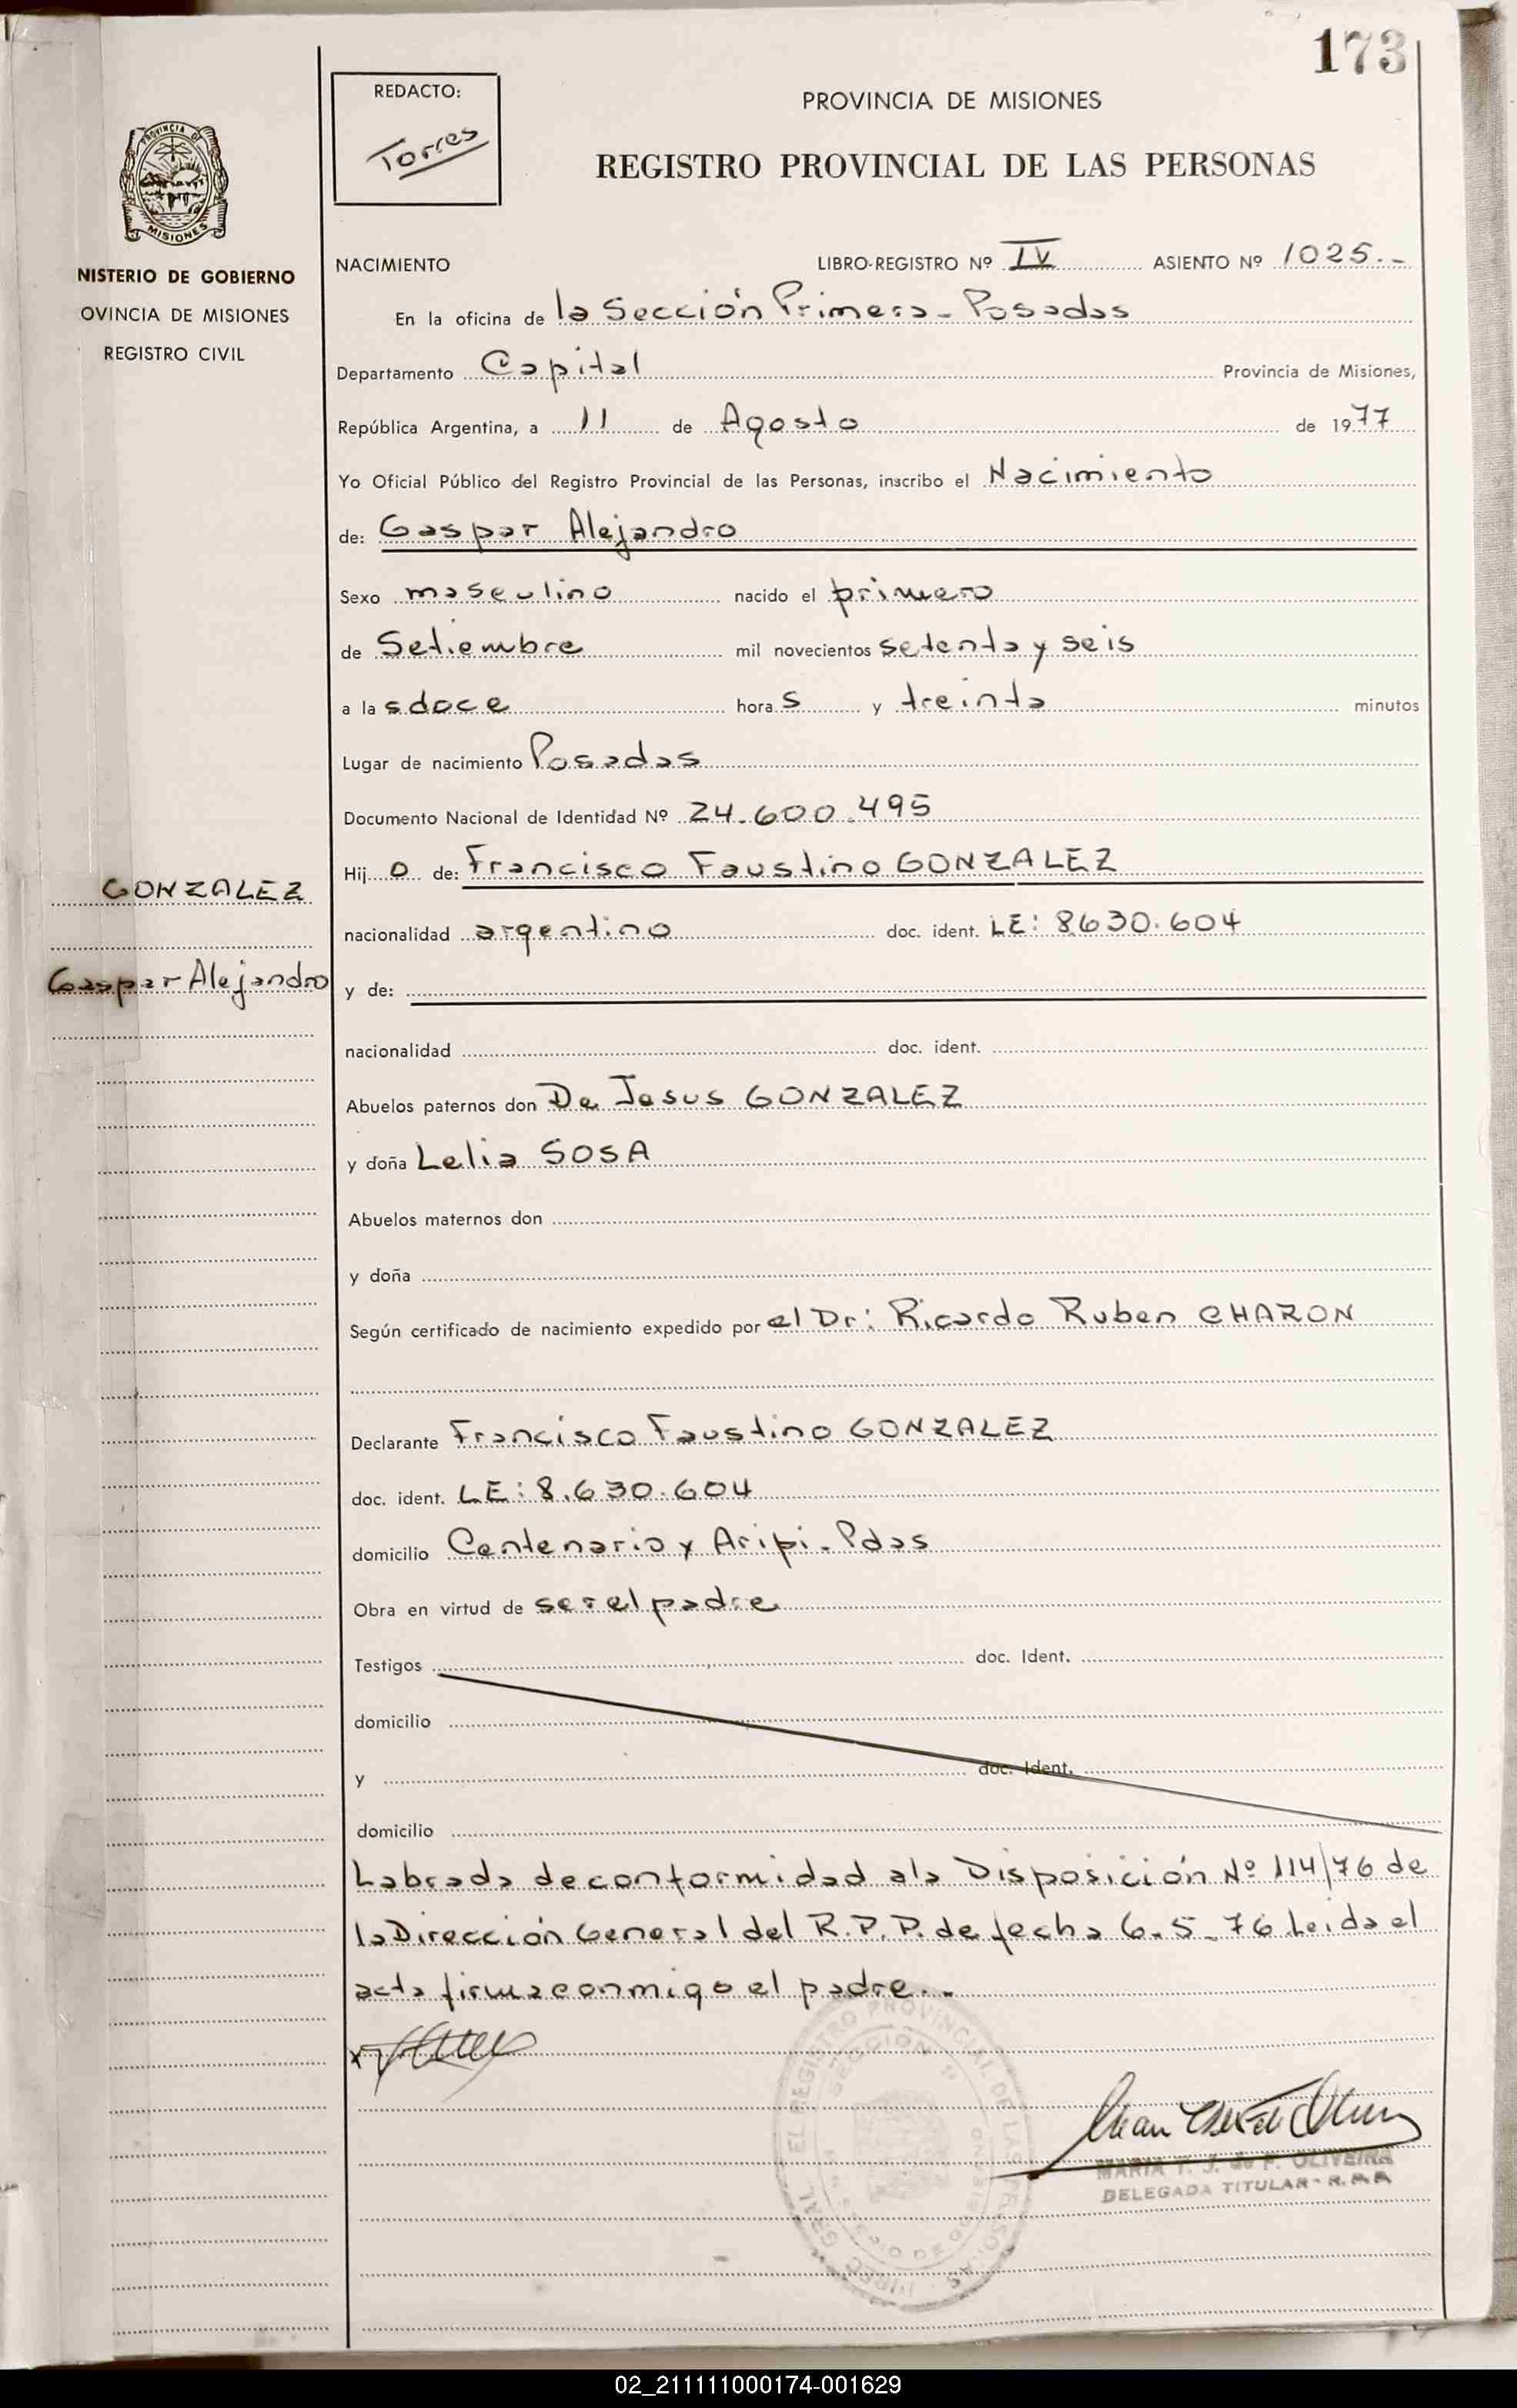 173
REDACTO:
Torres
PROVINCIA DE MISIONES
REGISTRO PROVINCIAL DE LAS PERSONAS
PROVINCIA DE
MISIONES
NISTERIO DE GOBIERNO
OVINCIA DE MISIONES
REGISTRO CIVIL
NACIMIENTO LIBRO-REGISTRO Nº IV ASIENTO Nº 1025.-
En la oficina de la Sección Primera - Posadas
Departamento Capital Provincia de Misiones,
República Argentina, a 11 de Agosto de 1977
Yo Oficial Público del Registro Provincial de las Personas, inscribo el Nacimiento
de: Gaspar Alejandro
Sexo masculino nacido el primero
de Setiembre mil novecientos setenta y seis
a las doce horas y treinta minutos
Lugar de nacimiento Posadas
Documento Nacional de Identidad Nº 24.600.495
Hijo de: Francisco Faustino GONZALEZ
GONZALEZ
nacionalidad argentino doc. ident. LE: 8630.604
Gaspar Alejandro
y de:
nacionalidad doc. ident.
Abuelos paternos don De Jesus GONZALEZ
y doña Lelia SOSA
Abuelos maternos don
y doña
Según certificado de nacimiento expedido por el Dr: Ricardo Ruben CHAZON
Declarante Francisco Faustino GONZALEZ
doc. ident. LE: 8.630.604
domicilio Centenario y Aripi. Pdas
Obra en virtud de ser el padre
Testigos doc. Ident.
domicilio
y doc. Ident.
domicilio
Labrada de conformidad a la Disposición Nº 114/76 de
la Dirección General del R.P.P. de fecha 6-5-76 Leida el
acta firma conmigo el padre.-
MARIA T. J. de F. OLIVEIRA
DELEGADA TITULAR - R.P.P.
02_211111000174-001629